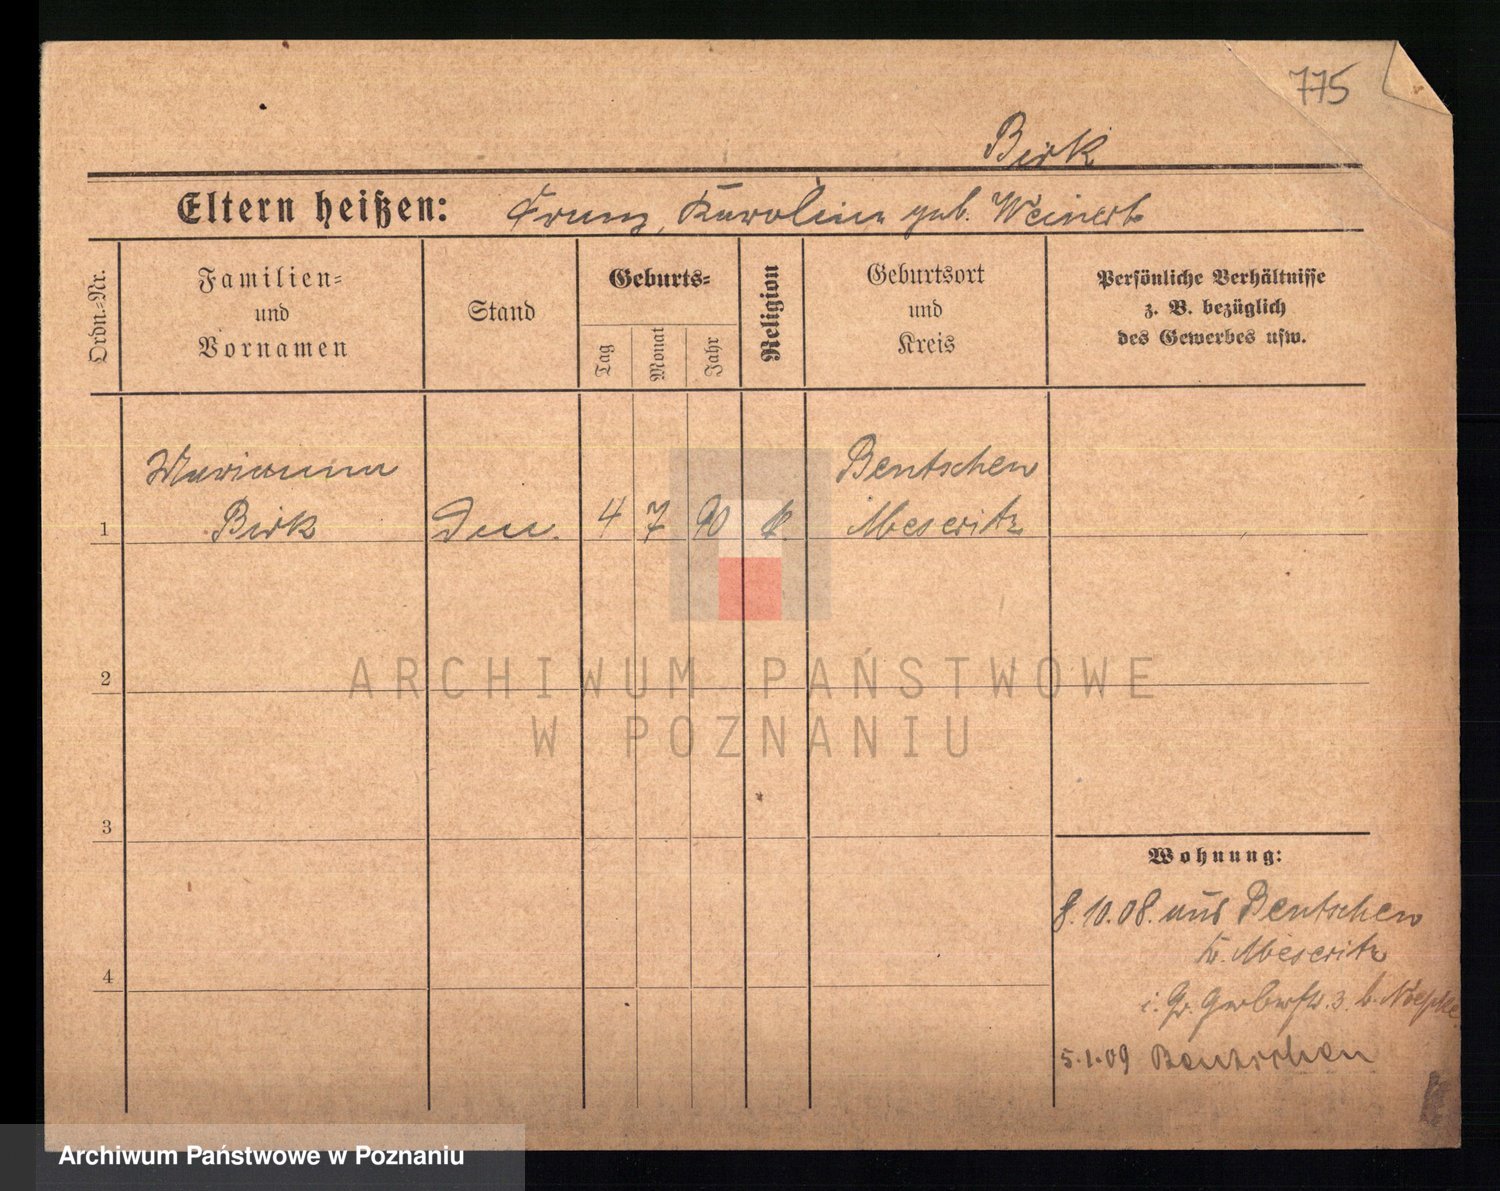 775
Birk
Eltern heißen: Franz, Karoline geb. Weinert
Ordn.-Nr.
Familien-
und
Vornamen
Stand
Geburts-
Tag
Monat
Jahr
Religion
Geburtsort
und
Kreis
Persönliche Verhältnisse
z. B. bezüglich
des Gewerbes usw.
Marianna Bentschen
1 Birk 4 7 90 k. Meseritz
2
ARCHIWUM PAŃSTWOWE
W POZNANIU
3
Wohnung:
8.10.08. aus Bentschen
Kr. Meseritz
4
i. Gr. Gerberstr. 3. b.
5.1.09 Bentschen
Archiwum Państwowe w Poznaniu